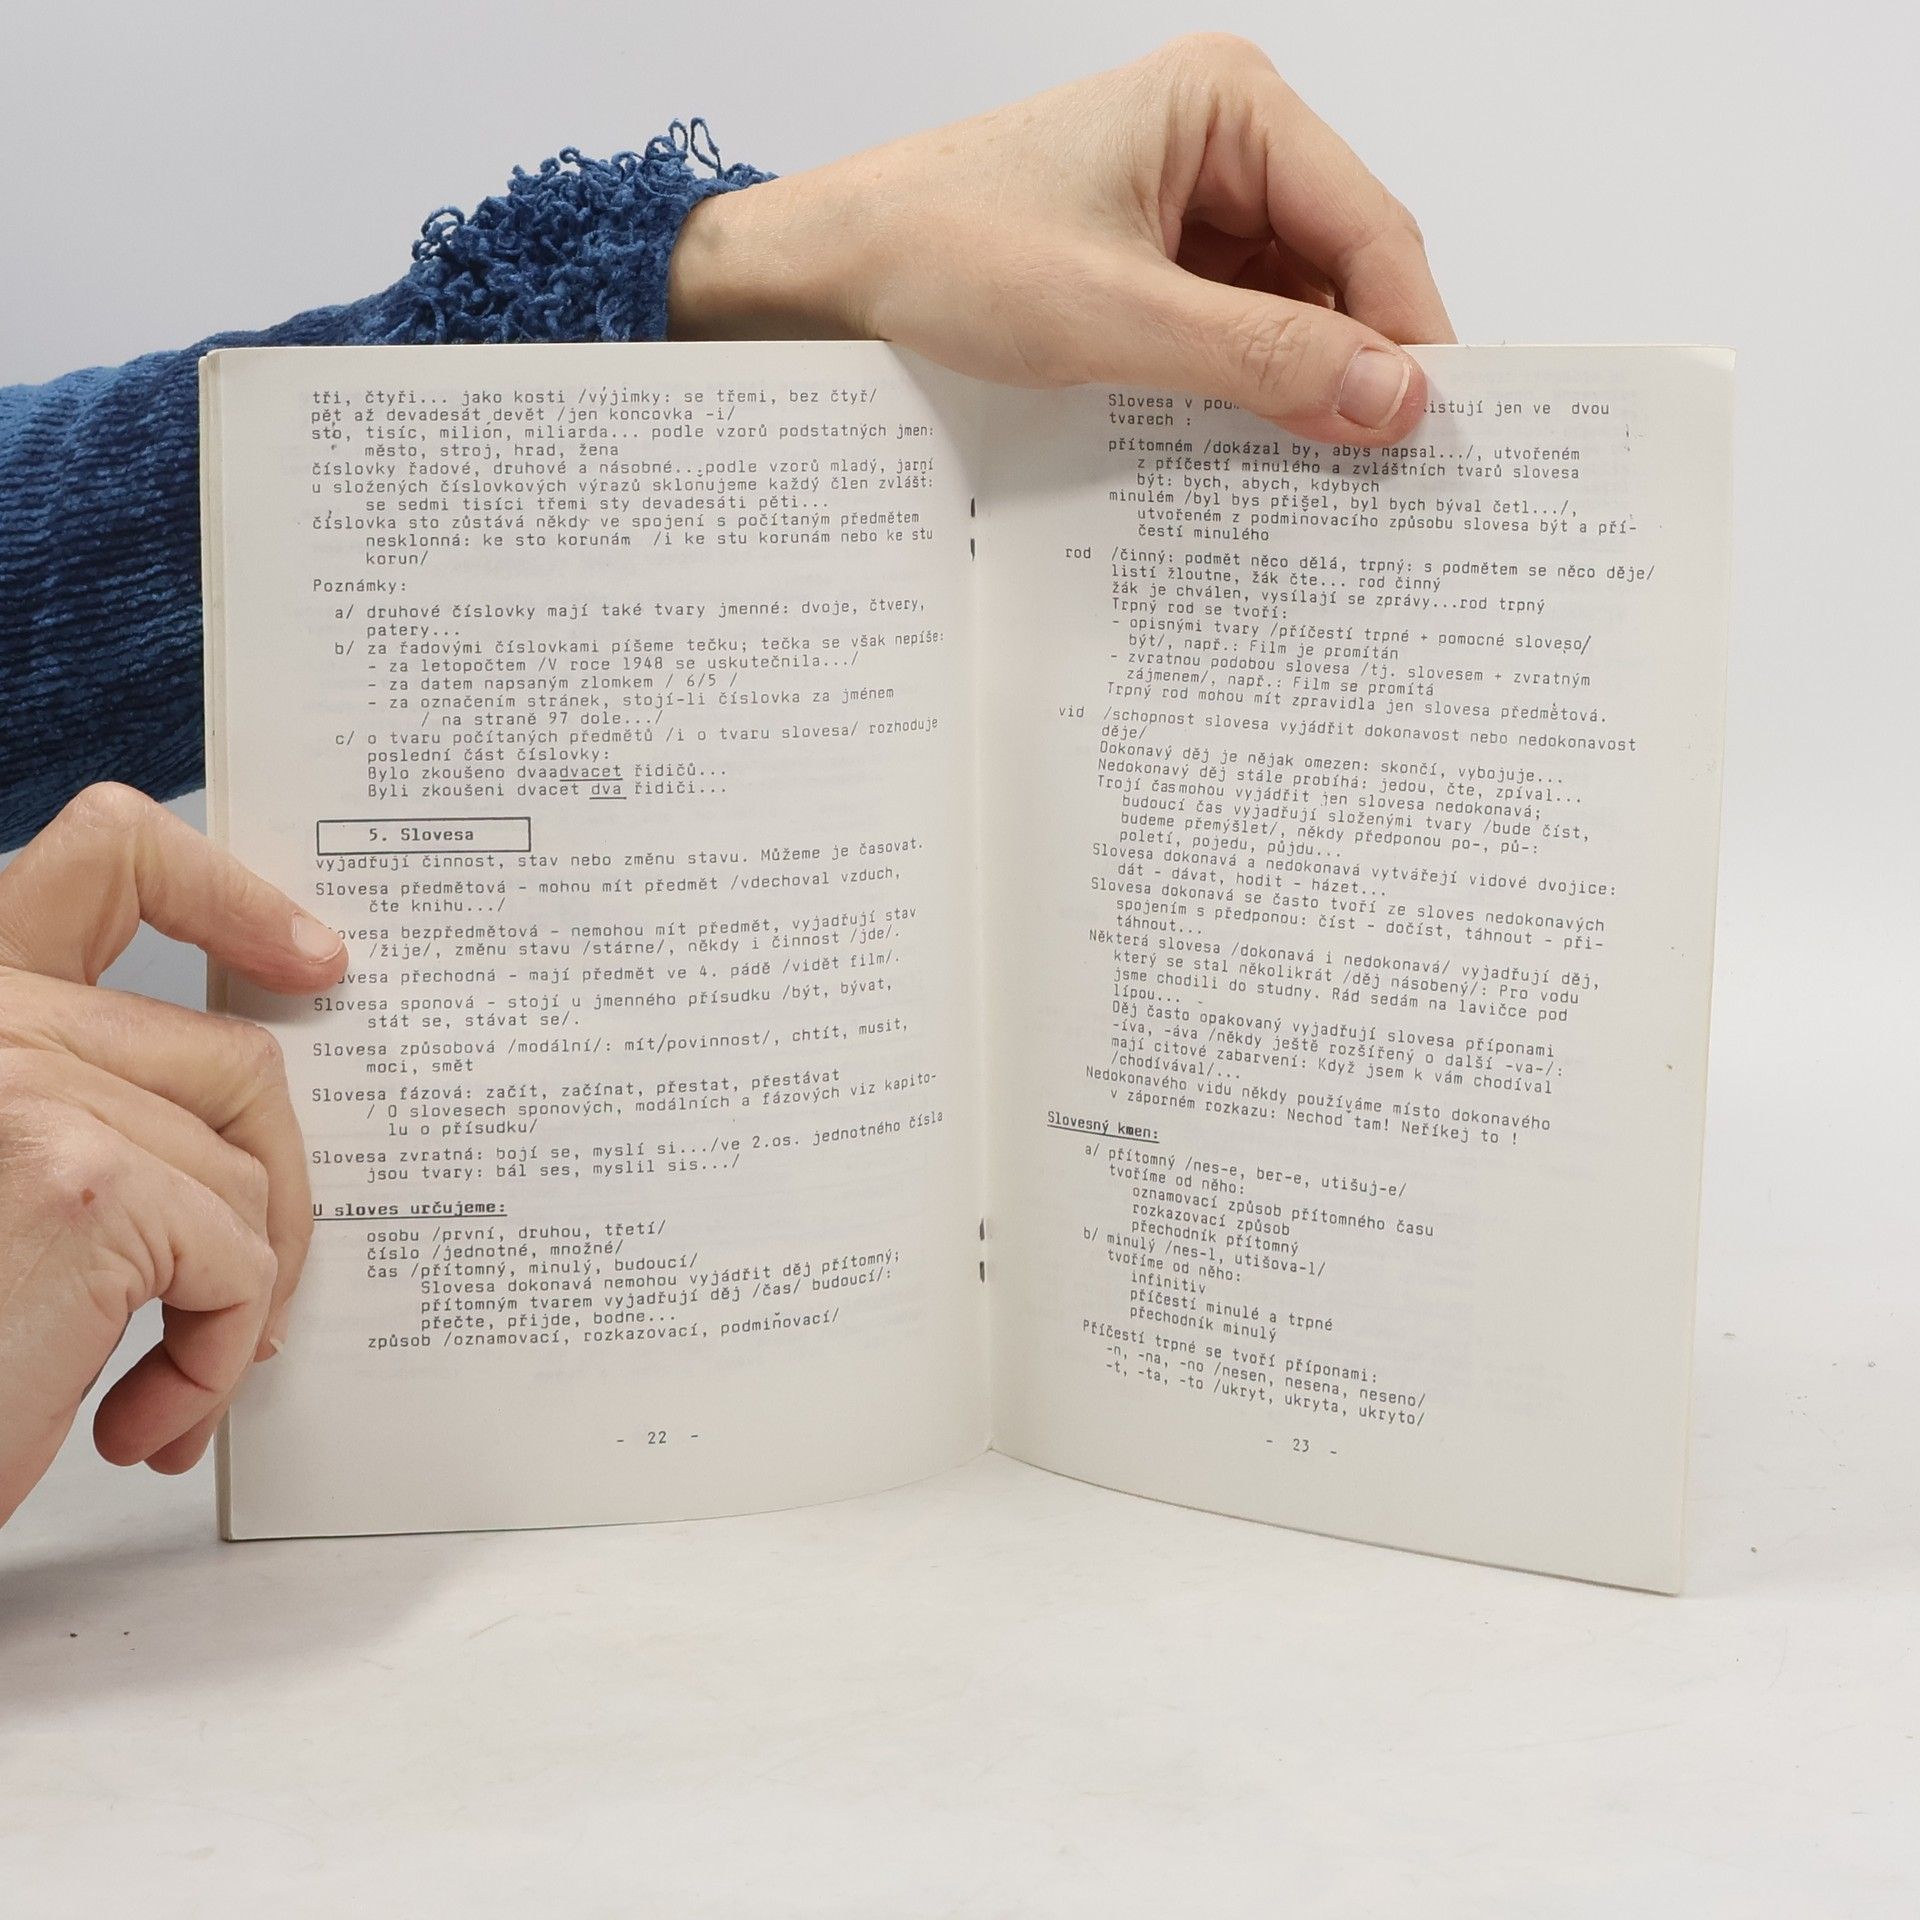 tři, čtyři... jako kosti /výjimky: se třemi, bez čtyř/
pět až devadesát devět /jen koncovka -i/
sto, tisíc, milión, miliarda... podle vzorů podstatných jmen:
město, stroj, hrad, žena
číslovky řadové, druhové a násobné...podle vzorů mladý, jarní
u složených číslovkových výrazů skloňujeme každý člen zvlášť:
se sedmi tisíci třemi sty devadesáti pěti...
číslovka sto zůstává někdy ve spojení s počítaným předmětem
nesklonná: ke sto korunám /i ke stu korunám nebo ke stu
korun/
Poznámky:
a/ druhové číslovky mají také tvary jmenné: dvoje, čtvery,
patery...
b/ za řadovými číslovkami píšeme tečku; tečka se však nepíše:
- za letopočtem /V roce 1948 se uskutečnila.../
- za datem napsaným zlomkem / 6/5 /
- za označením stránek, stojí-li číslovka za jménem
/ na straně 97 dole.../
c/ o tvaru počítaných předmětů /i o tvaru slovesa/ rozhoduje
poslední část číslovky:
Bylo zkoušeno dvaadvacet řidičů...
Byli zkoušeni dvacet dva řidiči...
5. Slovesa
vyjadřují činnost, stav nebo změnu stavu. Můžeme je časovat.
Slovesa předmětová - mohnu mít předmět /vdechoval vzduch,
čte knihu.../
ovesa bezpředmětová - nemohou mít předmět, vyjadřují stav
/žije/, změnu stavu /stárne/, někdy i činnost /jde/.
ovesa přechodná - mají předmět ve 4. pádě /vidět film/.
Slovesa sponová - stojí u jmenného přísudku /být, bývat,
stát se, stávat se/.
Slovesa způsobová /modální/: mít/povinnost/, chtít, musit,
moci, smět
Slovesa fázová: začít, začínat, přestat, přestávat
/ O slovesech sponových, modálních a fázových viz kapito-
lu o přísudku/
Slovesa zvratná: bojí se, myslí si.../ve 2.os. jednotného čísla
jsou tvary: bál ses, myslil sis.../
U sloves určujeme:
osobu /první, druhou, třetí/
číslo /jednotné, množné/
čas /přítomný, minulý, budoucí/
Slovesa dokonavá nemohou vyjádřit děj přítomný;
přítomným tvarem vyjadřují děj /čas/ budoucí/:
přečte, přijde, bodne...
způsob /oznamovací, rozkazovací, podmiňovací/
- 22 -
Slovesa v istují jen ve dvou
tvarech :
přítomném /dokázal by, abys napsal.../, utvořeném
z příčestí minulého a zvláštních tvarů slovesa
být: bych, abych, kdybych
minulém /byl bys přišel, byl bych býval četl.../,
utvořeném z podmiňovacího způsobu slovesa být a pří-
čestí minulého
rod /činný: podmět něco dělá, trpný: s podmětem se něco děje/
listí žloutne, žák čte... rod činný
žák je chválen, vysílají se zprávy...rod trpný
Trpný rod se tvoří:
- opisnými tvary /příčestí trpné + pomocné sloveso/
být/, např.: Film je promítán
- zvratnou podobou slovesa /tj. slovesem + zvratným
zájmenem/, např.: Film se promítá
Trpný rod mohou mít zpravidla jen slovesa předmětová.
vid /schopnost slovesa vyjádřit dokonavost nebo nedokonavost
děje/
Dokonavý děj je nějak omezen: skončí, vybojuje...
Nedokonavý děj stále probíhá: jedou, čte, zpíval...
Trojí časmohou vyjádřit jen slovesa nedokonavá;
budoucí čas vyjadřují složenými tvary /bude číst,
budeme přemýšlet/, někdy předponou po-, pů-:
poletí, pojedu, půjdu...
Slovesa dokonavá a nedokonavá vytvářejí vidové dvojice:
dát - dávat, hodit - házet...
Slovesa dokonavá se často tvoří ze sloves nedokonavých
spojením s předponou: číst - dočíst, táhnout - při-
táhnout...
Některá slovesa /dokonavá i nedokonavá/ vyjadřují děj,
který se stal několikrát /děj násobený/: Pro vodu
jsme chodili do studny. Rád sedám na lavičce pod
lípou...
Děj často opakovaný vyjadřují slovesa příponami
-íva, -áva /někdy ještě rozšířený o další -va-/:
mají citové zabarvení: Když jsem k vám chodíval
/chodívával/...
Nedokonavého vidu někdy používáme místo dokonavého
v záporném rozkazu: Nechoď tam! Neříkej to !
Slovesný kmen:
a/ přítomný /nes-e, ber-e, utišuj-e/
tvoříme od něho:
oznamovací způsob přítomného času
rozkazovací způsob
přechodník přítomný
b/ minulý /nes-l, utišova-l/
tvoříme od něho:
infinitiv
příčestí minulé a trpné
přechodník minulý
Příčestí trpné se tvoří příponami:
-n, -na, -no /nesen, nesena, neseno/
-t, -ta, -to /ukryt, ukryta, ukryto/
- 23 -